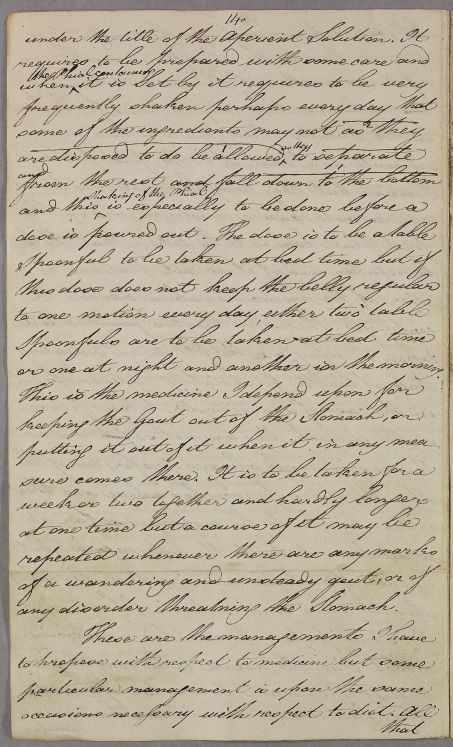 14.
under the title of the Aperient Solution. It
requires to be prepared with some care and
the Phial containing
when it is Set by it requires to be very
frequently shaken perhaps every day that
some of the ingredients may not as they
are disposed to do be allowed, as they to separate
and
from the rest and fall down to the bottom
shaking of the Phial
and this is especially to be done before a
dose is poured out. The dose is to be a table
Spoonful to be taken at bed time but if
this dose does not keep the belly regular
to one motion every day, either two table
Spoonfuls are to be taken at bed time
or one at night and another in the morning.
This is the medicine I depend upon for
keeping the Gout out of the Stomach, or
putting it out of it when it in any mea
sure comes there. It is to be taken for a
week or two together and hardly longer
at one time but a course of it may be
repeated whenever there are any marks
of a wandering and unsteady gout, or of
any disorder threatning the Stomach.
These are the managements I have
to propose with respect to medicine but some
particular management is upon the same
occasions necessary with respect to diet. All
that